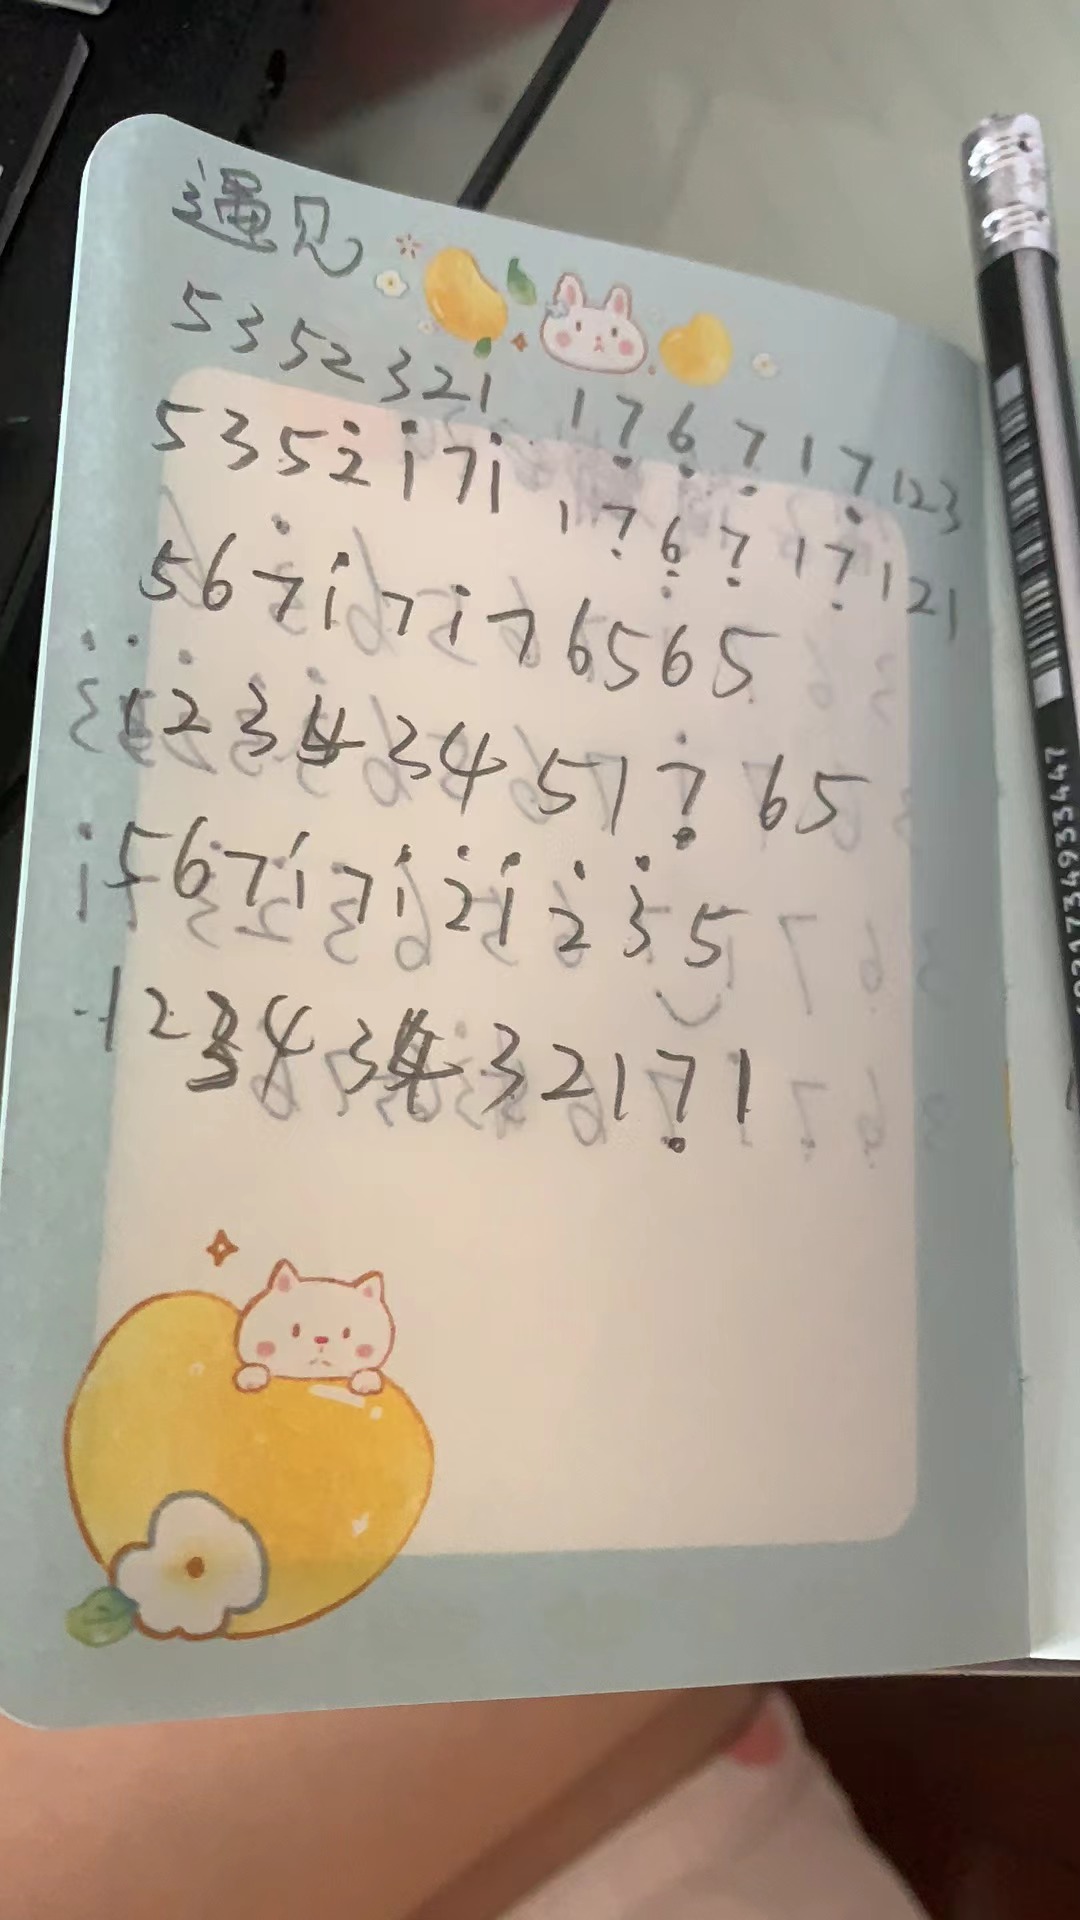 遇见
5 3 5 2 3 2 1 1 7̣ 6̣ 7̣ 1 7̣ 1 2 3
5 3 5 2̇ 1̇ 7 1̇ 1 7̣ 6̣ 7̣ 1 7̣ 1 2 1
5 6 7 1̇ 7 1̇ 7 6 5 6 5
1 2 3 4 3 4 5 1 7̣ 6 5
5 6 7 1̇ 7 1̇ 2̇ 1̇ 2̇ 3̇ 5
1 2 3 4 3 4 3 2 1 7̣ 1
6921734933447